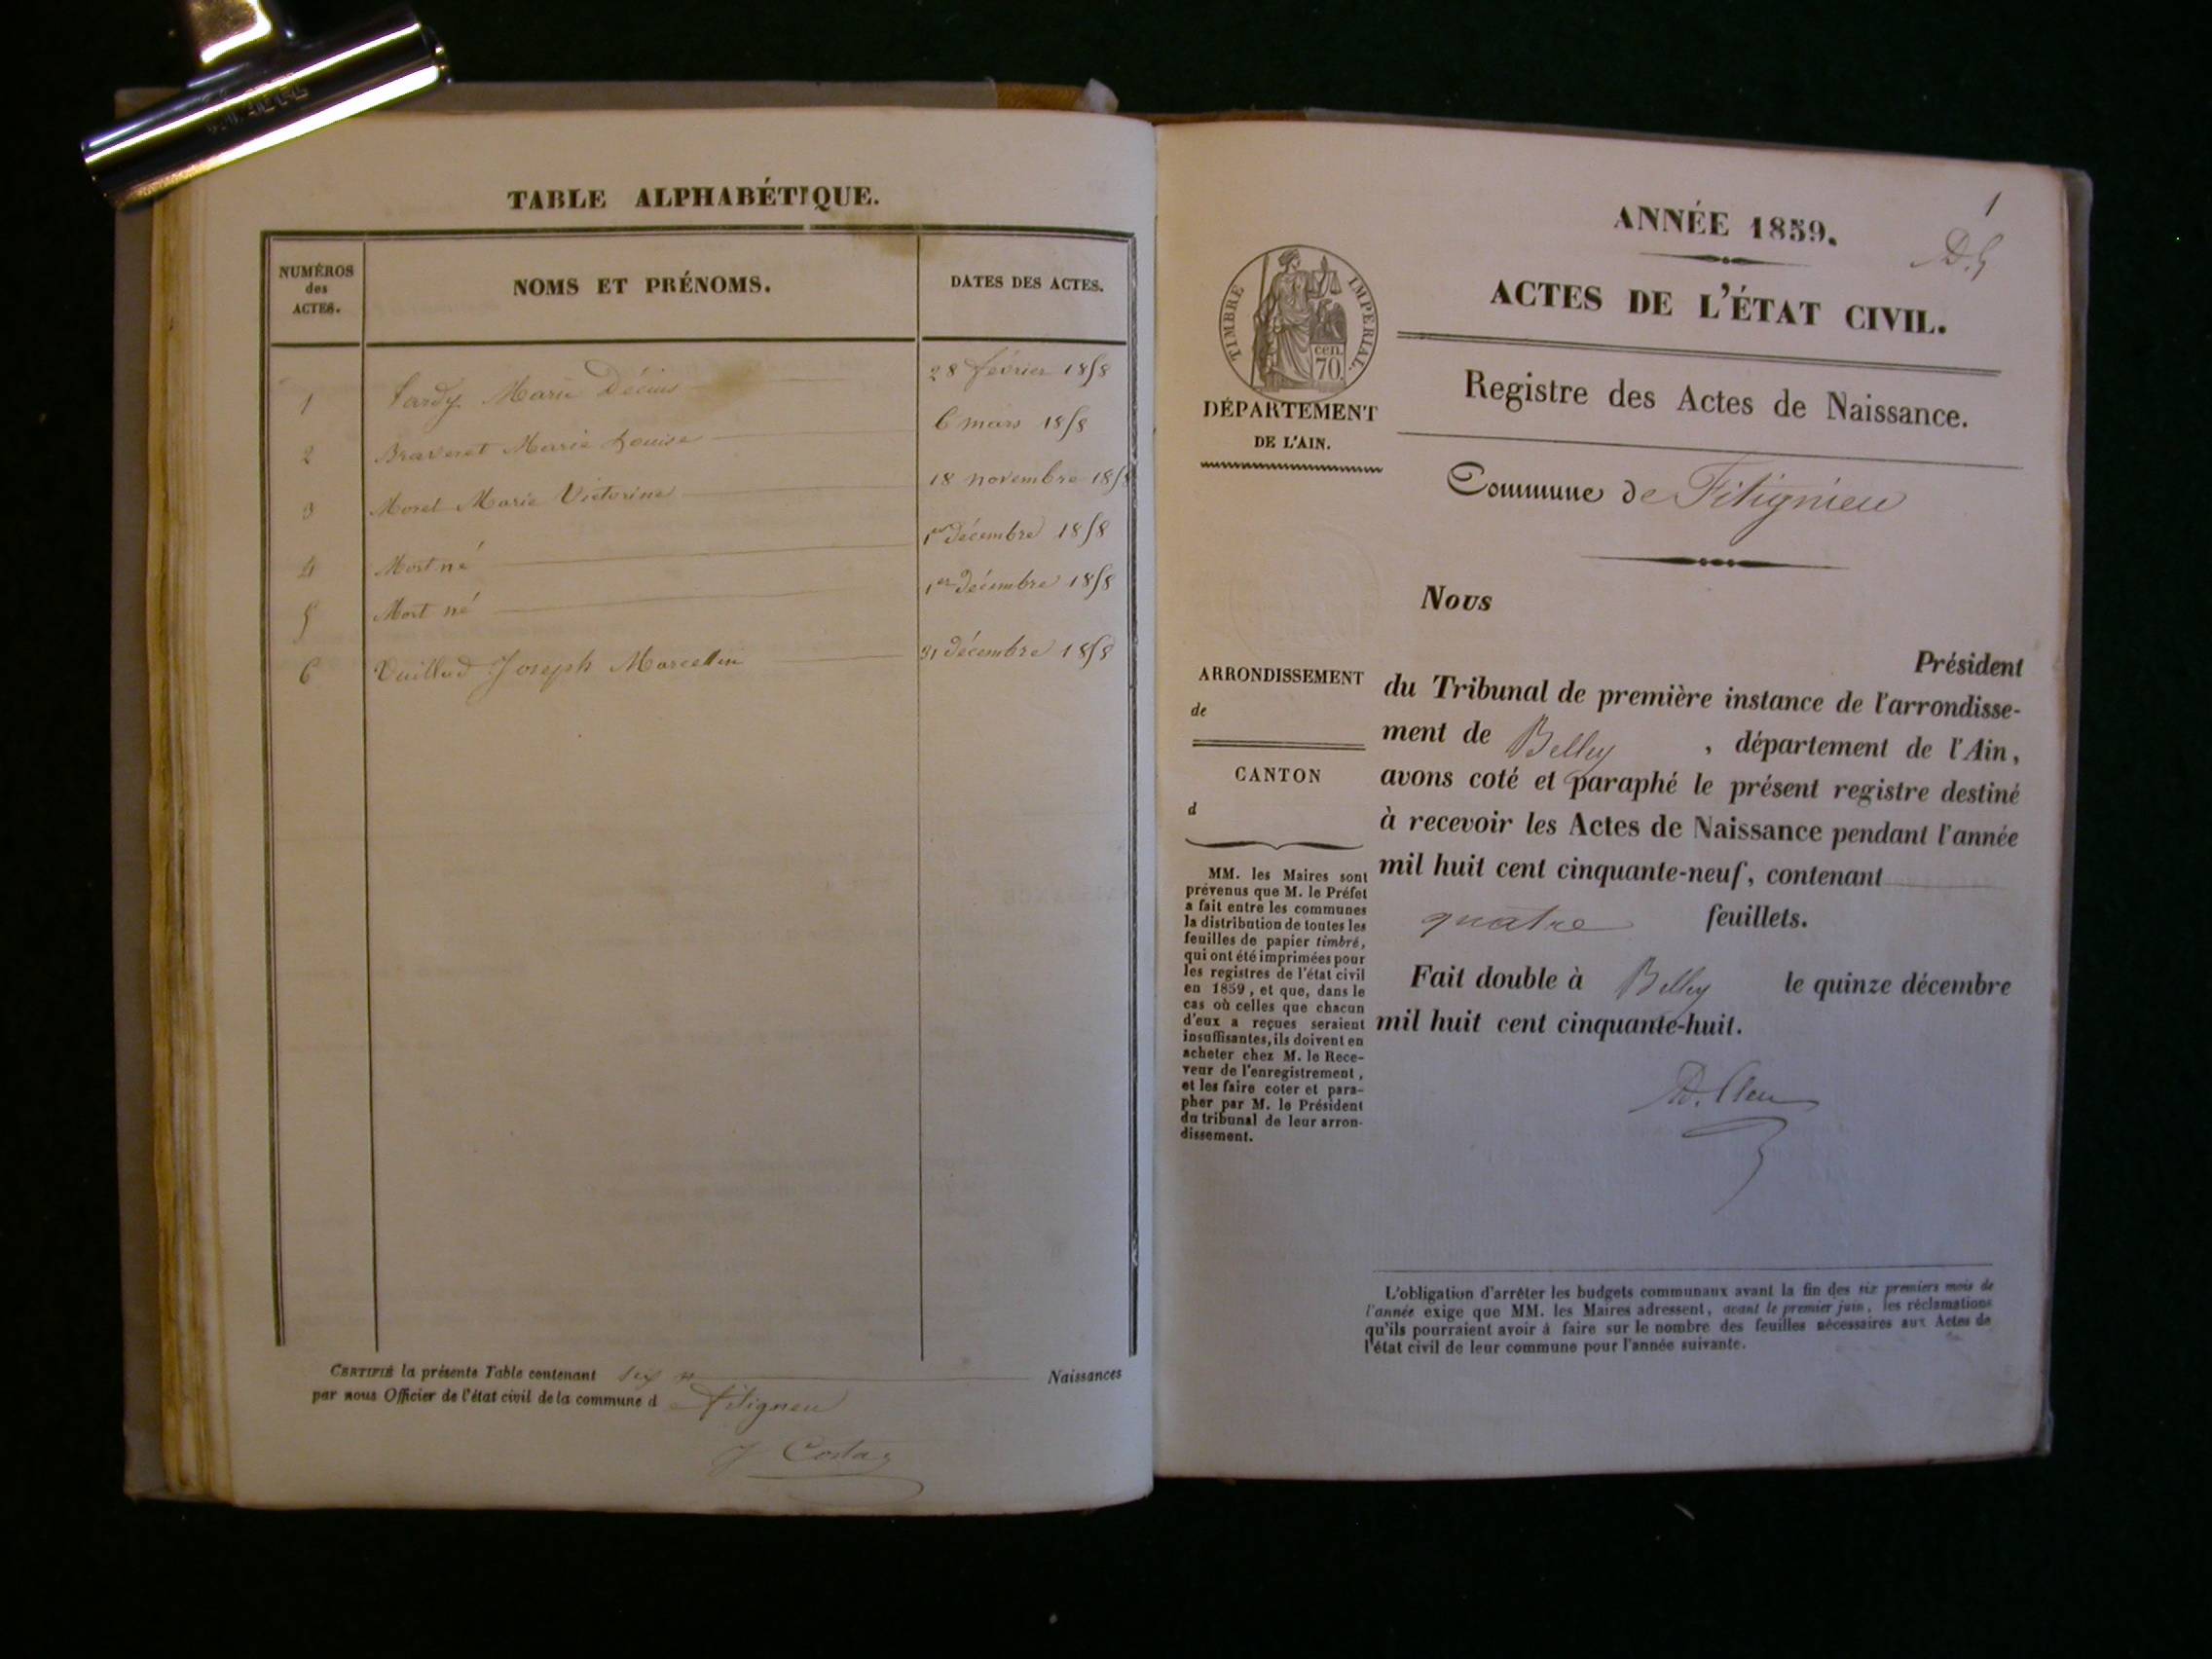 TABLE ALPHABÉTIQUE.
NUMÉROS
des
ACTES.
NOMS ET PRÉNOMS.
DATES DES ACTES.
1 Tardy Marie 28 février 1858
2 Braveret Marie Louise 6 mars 1858
3 Morel Marie Victorine 18 novembre 1858
4 Mort né 1er décembre 1858
5 Mort né 1er décembre 1858
6 Vuillod Joseph Marcellin 31 décembre 1858
CERTIFIÉ la présente Table contenant six Naissances
par nous Officier de l'état civil de la commune d Fitignieu
J Costaz
1
ANNÉE 1859.
ACTES DE L'ÉTAT CIVIL.
TIMBRE IMPERIAL.
cen.
70.
DÉPARTEMENT
DE L'AIN.
Registre des Actes de Naissance.
Commune de Fitignieu
Nous
Président
du Tribunal de première instance de l'arrondisse-
ment de Belley , département de l'Ain,
avons coté et paraphé le présent registre destiné
à recevoir les Actes de Naissance pendant l'année
mil huit cent cinquante-neuf, contenant
quatre feuillets.
Fait double à Belley le quinze décembre
mil huit cent cinquante-huit.
ARRONDISSEMENT
de
CANTON
d
MM. les Maires sont
prévenus que M. le Préfet
a fait entre les communes
la distribution de toutes les
feuilles de papier timbré,
qui ont été imprimées pour
les registres de l'état civil
en 1859, et que, dans le
cas où celles que chacun
d'eux a reçues seraient
insuffisantes, ils doivent en
acheter chez M. le Rece-
veur de l'enregistrement,
et les faire coter et para-
pher par M. le Président
du tribunal de leur arron-
dissement.
L'obligation d'arrêter les budgets communaux avant la fin des six premiers mois de
l'année exige que MM. les Maires adressent, avant le premier juin, les réclamations
qu'ils pourraient avoir à faire sur le nombre des feuilles nécessaires aux Actes de
l'état civil de leur commune pour l'année suivante.